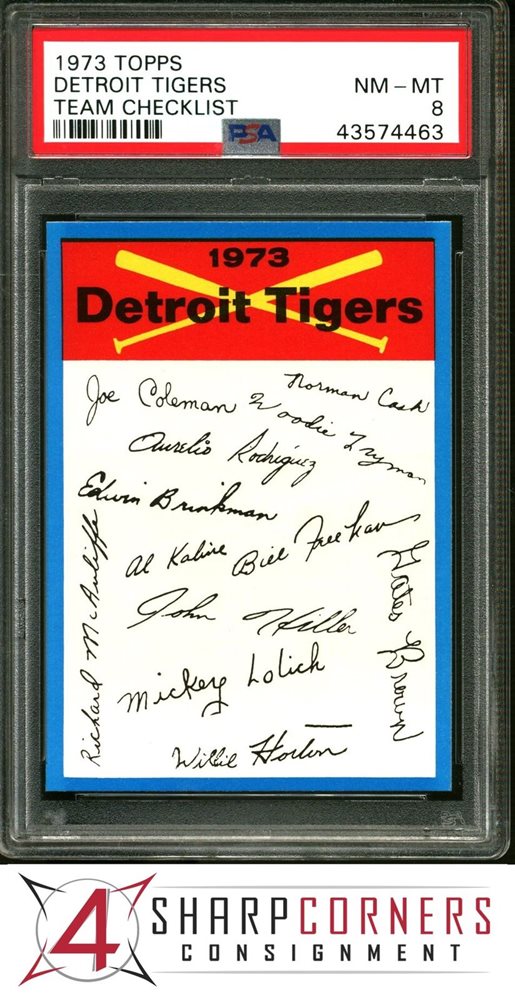 1973 TOPPS
DETROIT TIGERS NM – MT
TEAM CHECKLIST 8
PSA 43574463
1973
Detroit Tigers
Joe Coleman
Norman Cash
Woodie Fryman
Aurelio Rodriguez
Edwin Brinkman
Richard McAuliffe
Al Kaline
Bill Freehan
Gates Brown
John Hiller
Mickey Lolich
Willie Horton
4 SHARP CORNERS
CONSIGNMENT